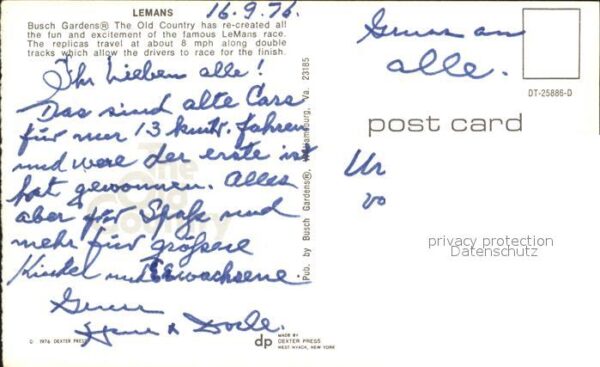 LEMANS
16.9.76.
Busch Gardens® The Old Country has re-created all
the fun and excitement of the famous LeMans race.
The replicas travel at about 8 mph along double
tracks which allow the drivers to race for the finish.
Ihr Lieben alle!
Das sind alte Cars
für nur 13 kmtr. fahren
und were der erste ist
hat gewonnen. Alles
aber für Spaß und
mehr für größere
Kinder und Erwachsene.
The
Old
Country
© 1976 DEXTER PRESS
Pub. by Busch Gardens®, Williamsburg, Va. 23185
dp
MADE BY
DEXTER PRESS
WEST NYACK, NEW YORK
an
alle.
DT-25886-D
post card
privacy protection
Datenschutz